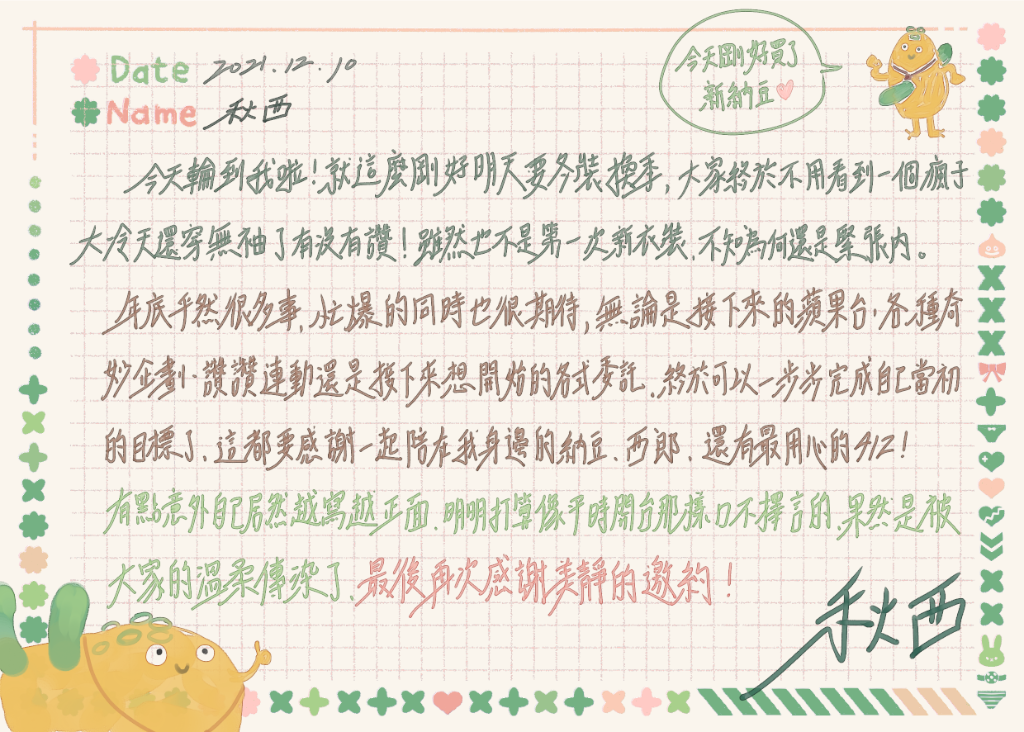 Date 2021.12.10
Name 秋西
今天剛好買了
新納豆
今天輪到我啦！就這麼剛好明天要冬裝換季，大家終於不用看到一個瘋子
大冷天還穿無袖了有沒有讚！雖然也不是第一次新衣裝、不知為何還是緊張內。
年底乎然很多事、忙爆的同時也很期待，無論是接下來的蘋果台、各種奇
妙企劃、讚讚連動還是接下來想開始的各式委託、終於可以一步步完成自己當初
的目標了、這都要感謝一起陪在我身邊的納豆、西郎、還有最用心的412！
有點意外自己居然越寫越正面、明明打算像平時開台那樣口不擇言的、果然是被
大家的溫柔傳染了、最後再次感謝美靜的邀約！
秋西